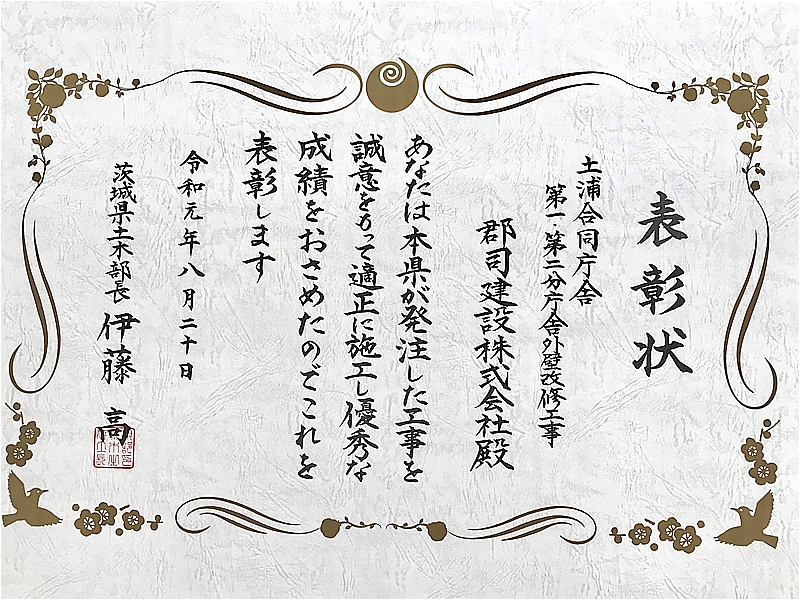 表彰状
土浦合同庁舎
第一・第二分庁舎外壁改修工事
郡司建設株式会社殿
あなたは本県が発注した工事を
誠意をもって適正に施工し優秀な
成績をおさめたのでこれを
表彰します
令和元年八月二十日
茨城県土木部長 伊藤高